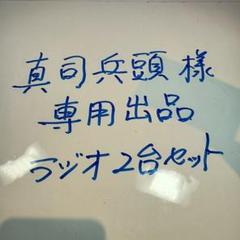 真司兵頭様
専用出品
ラジオ2台セット